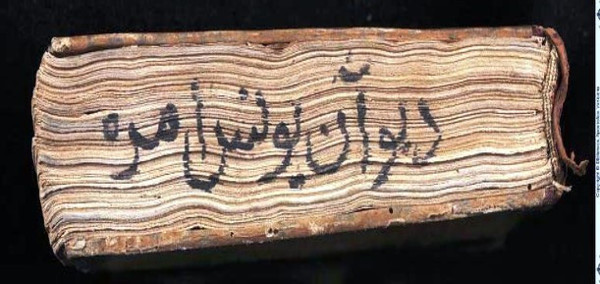 ديوان يونس امره